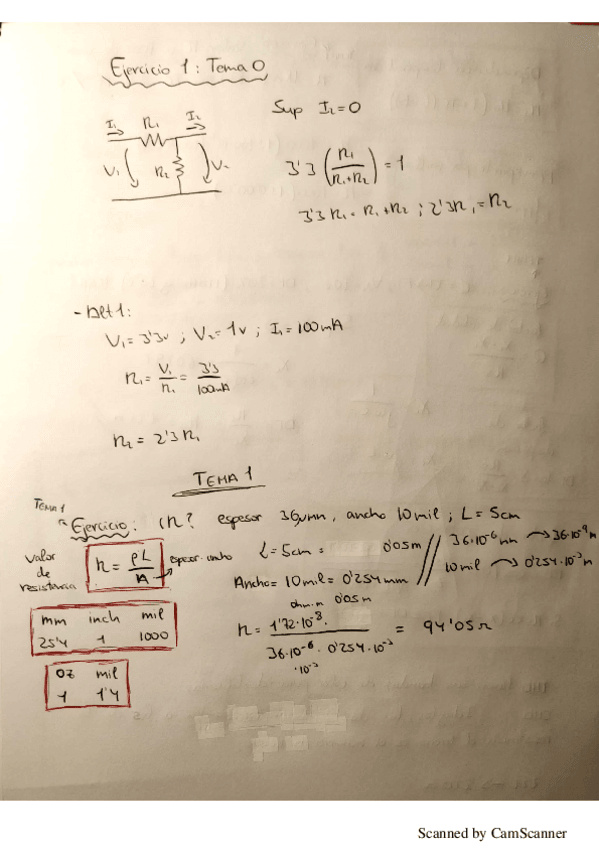 Ejercicio 1: Tema 0
I₁ R₁ I₂
V₁ R₂ V₂
Sup I₂=0
3'3 (R₁/(R₁+R₂)) = 1
3'3 R₁ = R₁+R₂ ; 2'3R₁ = R₂
V₁= 3'3v ; V₂= 1v ; I₁= 100mA
R₁= V₁/R₁ = 3'3/100mA
R₂ = 2'3 R₁
TEMA 1
TEMA 1
Ejercicio: ¿R? espesor 36μmn, ancho 10mil ; L= 5cm
valor de resistencia
R= ρL/A espesor·ancho
L=5cm = 0'05m // 36·10⁻⁶mn → 36·10⁻⁹m
Ancho= 10mil= 0'254mm // 10mil → 0'254·10⁻³m
mm inch mil
25'4 1 1000
ohm·m 0'05m
R= 1'72·10⁻⁸· / 36·10⁻⁶·0'254·10⁻³ = 94'05Ω
·10⁻³
oz mil
1 1'4
Scanned by CamScanner